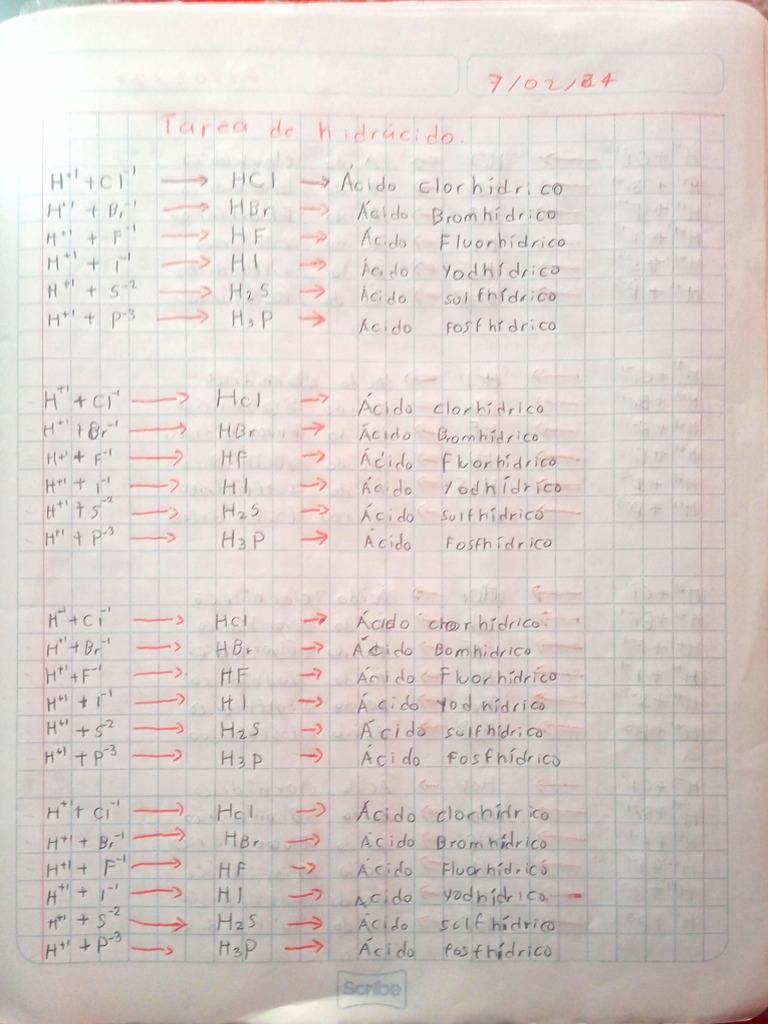 7/02/24
Tarea de hidrácido.
H⁺¹ + Cl⁻¹ → HCl → Ácido clorhídrico
H⁺¹ + Br⁻¹ → HBr → Ácido Bromhídrico
H⁺¹ + F⁻¹ → HF → Ácido Fluorhídrico
H⁺¹ + I⁻¹ → HI → Ácido Yodhídrico
H⁺¹ + S⁻² → H₂S → Ácido sulfhídrico
H⁺¹ + P⁻³ → H₃P → Ácido fosfhídrico
H⁺¹ + Cl⁻¹ → HCl → Ácido clorhídrico
H⁺¹ + Br⁻¹ → HBr → Ácido Bromhídrico
H⁺¹ + F⁻¹ → HF → Ácido Fluorhídrico
H⁺¹ + I⁻¹ → HI → Ácido Yodhídrico
H⁺¹ + S⁻² → H₂S → Ácido sulfhídrico
H⁺¹ + P⁻³ → H₃P → Ácido Fosfhídrico
H⁺¹ + Cl⁻¹ → HCl → Ácido clorhídrico
H⁺¹ + Br⁻¹ → HBr → Ácido Bomhídrico
H⁺¹ + F⁻¹ → HF → Ácido Fluorhídrico
H⁺¹ + I⁻¹ → HI → Ácido Yodhídrico
H⁺¹ + S² → H₂S → Ácido sulfhídrico
H⁺¹ + P⁻³ → H₃P → Ácido Fosfhídrico
H⁺¹ + Cl⁻¹ → HCl → Ácido clorhídrico
H⁺¹ + Br⁻¹ → HBr → Ácido Bromhídrico
H⁺¹ + F⁻¹ → HF → Ácido Fluorhídrico
H⁺¹ + I⁻¹ → HI → Ácido yodhídrico
H⁺¹ + S⁻² → H₂S → Ácido sulfhídrico
H⁺¹ + P⁻³ → H₃P → Ácido fosfhídrico
Scribe